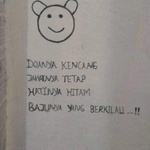 DOANYA KENCANG
JAHATNYA TETAP
HATINYA HITAM
BAJUNYA YANG BERKILAU...!!